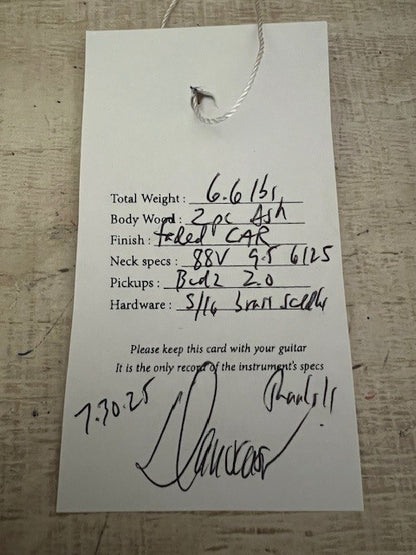 Total Weight : 6.6 lbs
Body Wood : 2 pc Ash
Finish : faded CAR
Neck specs : 88V 9.5 6125
Pickups : 2.0
Hardware : 5/16 brass saddles
Please keep this card with your guitar
It is the only record of the instrument's specs
7.30.25 Thanks!!